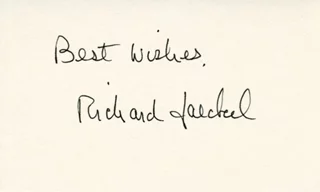 Best Wishes,
Richard Jaeckel